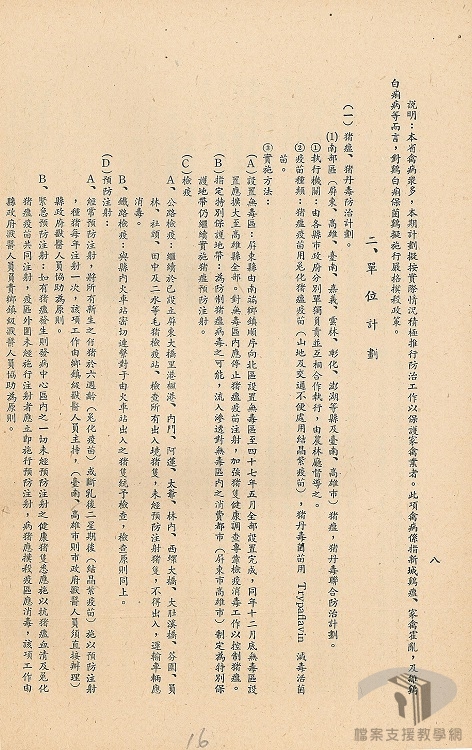 說明：本省禽病衆多，本期計劃擬按實際情況積極推行防治工作以保護家禽業者。此項禽病係指新城鷄瘟、家禽霍亂，及雛鷄
白痢病等而言，對鷄白痢保菌鷄擬施行嚴格撲殺政策。
二、單位計劃
(一) 猪瘟、猪丹毒防治計劃。
(1)南部區（屏東、高雄、臺南、嘉義、雲林、彰化、澎湖等縣及臺南、高雄市）猪瘟，猪丹毒聯合防治計劃。
①執行機關：由各縣市政府分别單獨負責並互相合作執行，由農林廳督導之。
②疫苗種類：猪瘟疫苗用兎化猪瘟疫苗（山地及交通不便處用結晶紫疫苗），猪丹毒菌苗用 Trypaflavin 減毒活菌
苗。
③實施方法：
(A)設置無毒區：屏東縣由南端鄉鎮順序向北區設置無毒區至四十七年五月全部設置完成，同年十二月底無毒區設
置應擴大至高雄縣全部。針無毒區內應停止猪瘟疫苗注射，加强猪隻健康調查專靠檢疫消毒工作以控制猪瘟。
(B)指定特別保護地帶：為防制猪瘟病毒之可能，流入滲透對無毒區內之消費都市（屏東市高雄市）制定為特別保
護地帶仍繼續實施猪瘟預防注射。
(C)檢疫
A、公路檢疫：繼續於已設立屏東大橋里港楓港、內門、阿蓮、太爺、林內、西螺大橋、大肚溪橋、芬園、員
林、社頭、田中及二水等毛猪檢疫站、檢查所有出入境猪隻，未經預防注射猪隻，不得出入，運輸車輛應
消毒。
B、鐵路檢疫：與縣內火車站密切連繫對于由火車站出入之猪隻統予檢查，檢查原則同上。
(D)預防注射：
A、經常預防注射，將所有新生之仔猪於六週齡（兎化疫苗）或斷乳後二星期後（結晶紫疫苗）施以預防注射
，種猪每年注射一次，該項工作由鄉鎮級獸醫人員主持，（臺南、高雄市則市政府獸醫人員須直接辦理）
縣政府獸醫人員協助為原則。
B、緊急預防注射：如有猪瘟發生則發病中心區內之一切未經預防注射之健康猪隻悉應施以抗猪瘟血清及兎化
猪瘟疫苗共同注射，疫區外圍未經施行注射者應立即施行預防注射，病猪應撲殺疫區應消毒，該項工作由
縣政府獸醫人員負責鄉鎮級獸醫人員協助為原則。
八
16
檔案支援教學網